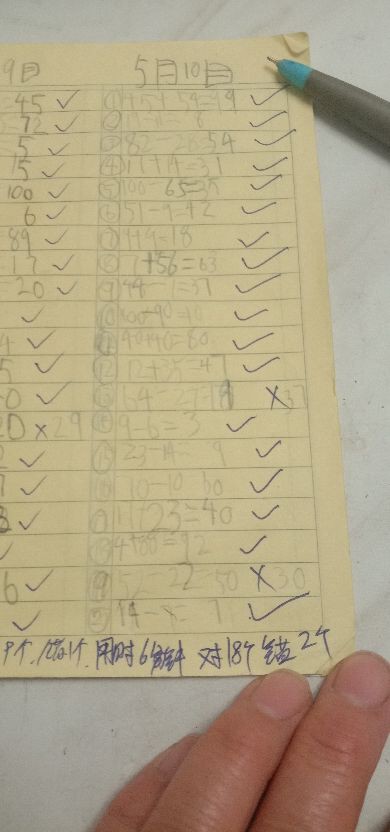 9日 5月10日
=45 ✓ ① 45+54=99 ✓
72 ✓ ②
5 ✓ ③ 82-28=54 ✓
15 ✓ ④ 17+14=31 ✓
100 ✓ ⑤ 100-65=35 ✓
6 ✓ ⑥ 51-9=42 ✓
89 ✓ ⑦ 9+9=18 ✓
17 ✓ ⑧ 7+56=63 ✓
=20 ✓ ⑨ 44-7=37 ✓
✓ ⑩ 100-90=10 ✓
4 ✓ ⑪ 40+40=80 ✓
5 ✓ ⑫ 12+35=47 ✓
0 ✓ ⑬ 64-27= ×37
20 ×29 ⑭ 9-6=3 ✓
2 ✓ ⑮ 23-14=9 ✓
✓ ⑯ 70-10=60 ✓
8 ✓ 17+23=40 ✓
✓ 4+88=92 ✓
6 ✓ 52-22=50 ×30
✓ 14- =7 ✓
个.错1个.用时6分钟 对18个 错2个